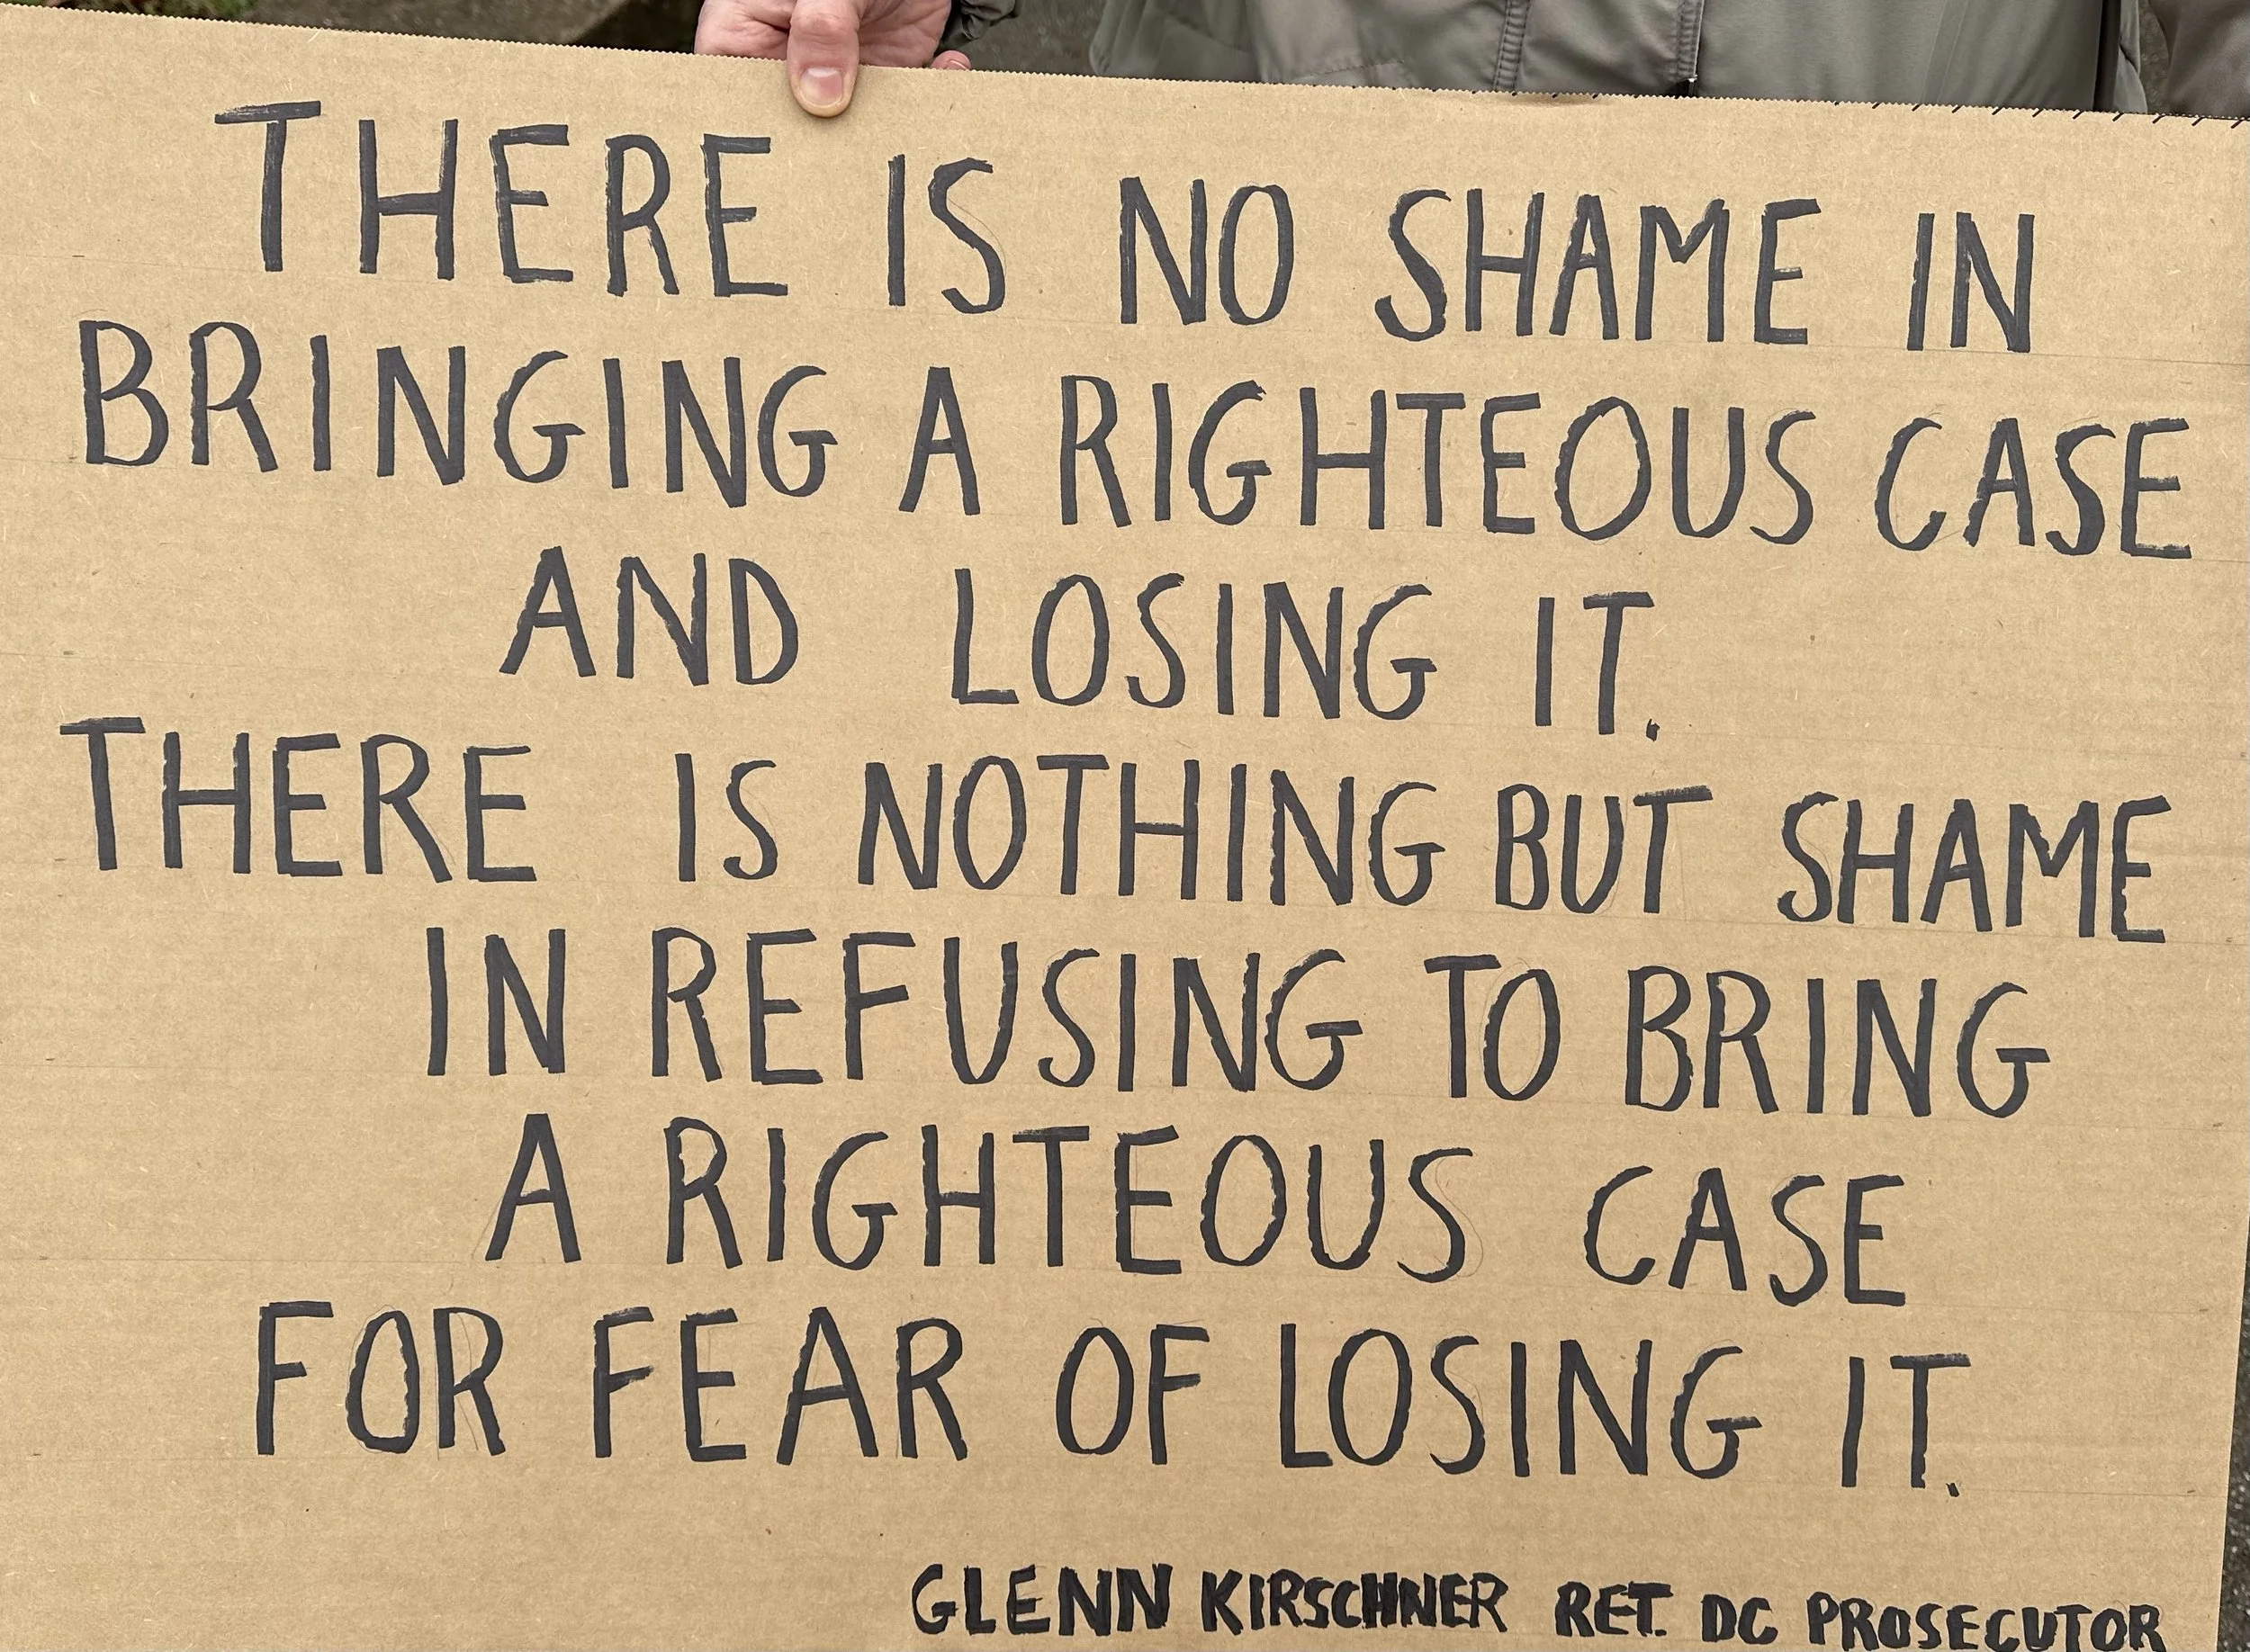 THERE IS NO SHAME IN
BRINGING A RIGHTEOUS CASE
AND LOSING IT.
THERE IS NOTHING BUT SHAME
IN REFUSING TO BRING
A RIGHTEOUS CASE
FOR FEAR OF LOSING IT.
GLENN KIRSCHNER RET. DC PROSECUTOR